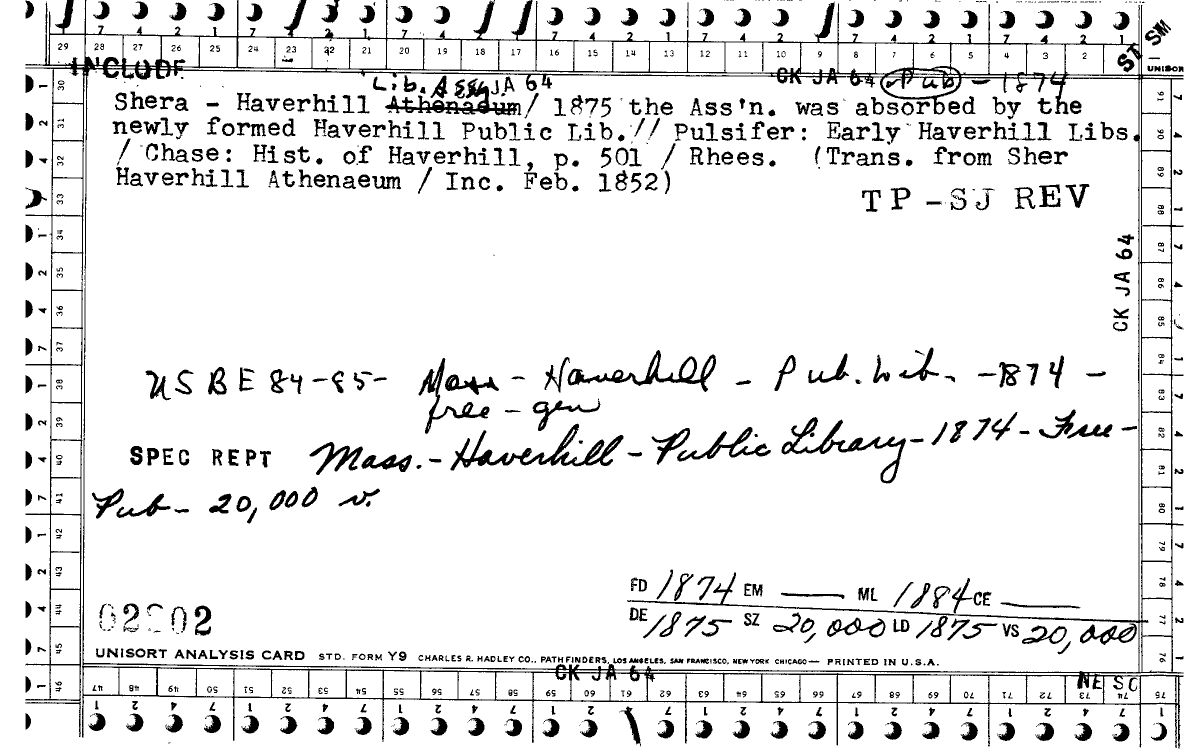 29 28 27 26 25 24 23 22 21 20 19 18 17 16 15 14 13 12 11 10 9 8 7 6 5 4 3 2
ST SM
UNISORT
INCLUDE
Lib. Assn JA 64
CK JA 64 Pub - 1874
Shera - Haverhill Athenaeum/ 1875 the Ass'n. was absorbed by the
newly formed Haverhill Public Lib.// Pulsifer: Early Haverhill Libs.
/ Chase: Hist. of Haverhill, p. 501 / Rhees. (Trans. from Sher
Haverhill Athenaeum / Inc. Feb. 1852)
TP-SJ REV
CK JA 64
USBE 84-85- Mass - Haverhill - Pub. Lib. -1874 -
free - gen
SPEC REPT Mass. - Haverhill - Public Library - 1874 - Free -
Pub - 20,000 v.
FD 1874 EM ML 1884 CE
DE 1875 SZ 20,000 LD 1875 VS 20,000
UNISORT ANALYSIS CARD STD. FORM Y9 CHARLES R. HADLEY CO., PATHFINDERS, LOS ANGELES, SAN FRANCISCO, NEW YORK CHICAGO— PRINTED IN U.S.A.
CK JA 64
NE SC
47 48 49 50 51 52 53 54 55 56 57 58 59 60 61 62 63 64 65 66 67 68 69 70 71 72 73 74 75